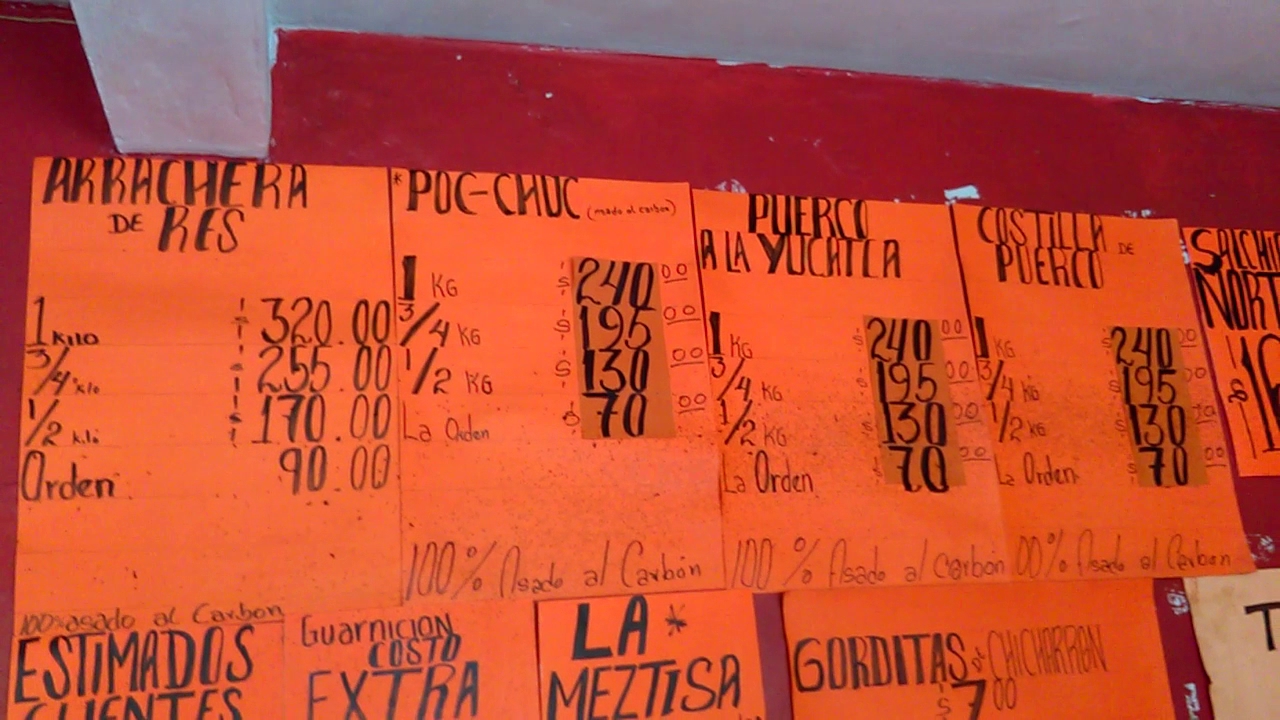 ARRACHERA
DE RES
1 KILO $ 320.00
3/4 kilo $ 255.00
1/2 kilo $ 170.00
Orden 90.00
100% asado al Carbon
* POC-CHUC (asado al carbon)
1 KG $ 240 00
3/4 KG $ 195 00
1/2 KG $ 130 00
La Orden $ 70 00
100% Asado al Carbon
PUERCO
A LA YUCATCA
1 KG $ 240 00
3/4 KG $ 195 00
1/2 KG $ 130 00
La Orden $ 70 00
100 % Asado al carbon
COSTILLA DE
PUERCO
1 KG $ 240 00
3/4 KG $ 195 00
1/2 KG $ 130
La Orden $ 70 00
00% Asado al Carbon
SALCHI
NORT
$
ESTIMADOS
CLIENTES
Guarnicion
COSTO
EXTRA
LA *
MEZTISA
GORDITAS de CHICHARRON
$ 7 00
T